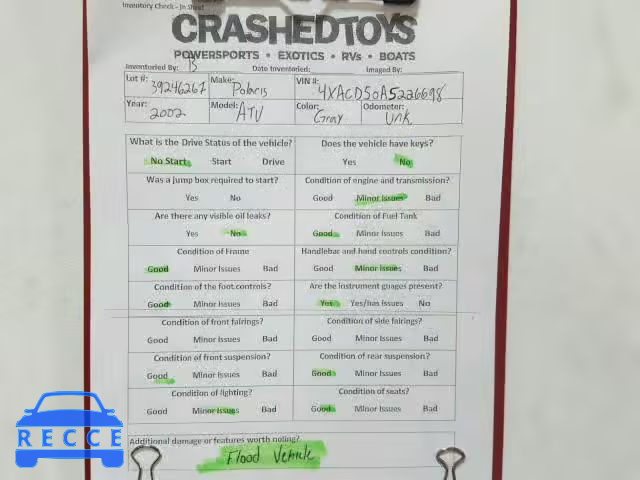 Inventory Check - In Sheet
CRASHEDTOYS
POWERSPORTS • EXOTICS • RVs • BOATS
Inventoried By: Date Inventoried: Imaged By:
Lot #: 39246267 Make: Polaris VIN #: 4XACD50A5226698
Year: 2002 Model: ATV Color: Gray Odometer: Unk
What is the Drive Status of the vehicle? Does the vehicle have keys?
No Start Start Drive Yes No
Was a jump box required to start? Condition of engine and transmission?
Yes No Good Minor Issues Bad
Are there any visible oil leaks? Condition of Fuel Tank
Yes No Good Minor Issues Bad
Condition of Frame Handlebar and hand controls condition?
Good Minor Issues Bad Good Minor Issues Bad
Condition of the foot controls? Are the instrument guages present?
Good Minor Issues Bad Yes Yes/has issues No
Condition of front fairings? Condition of side fairings?
Good Minor Issues Bad Good Minor Issues Bad
Condition of front suspension? Condition of rear suspension?
Good Minor Issues Bad Good Minor Issues Bad
Condition of lighting? Condition of seats?
Good Minor Issues Bad Good Minor Issues Bad
Additional damage or features worth noting?
Flood Vehicle
RECCE